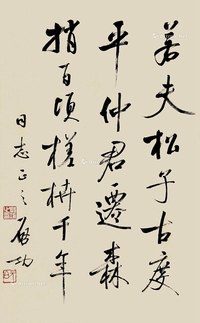 若夫松子古度
平仲君遷森
捎百頃槎枿千年
同志正之
启功